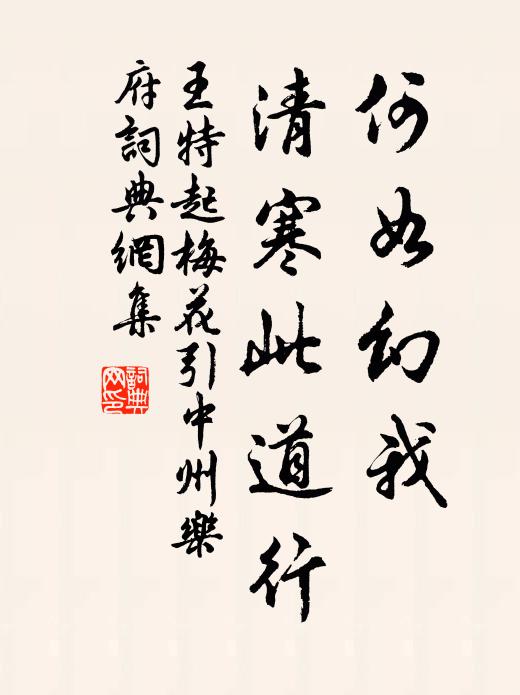 何如幻我
清寒此道行
王特起梅花引中州樂
府詞典網集
詞典
网印